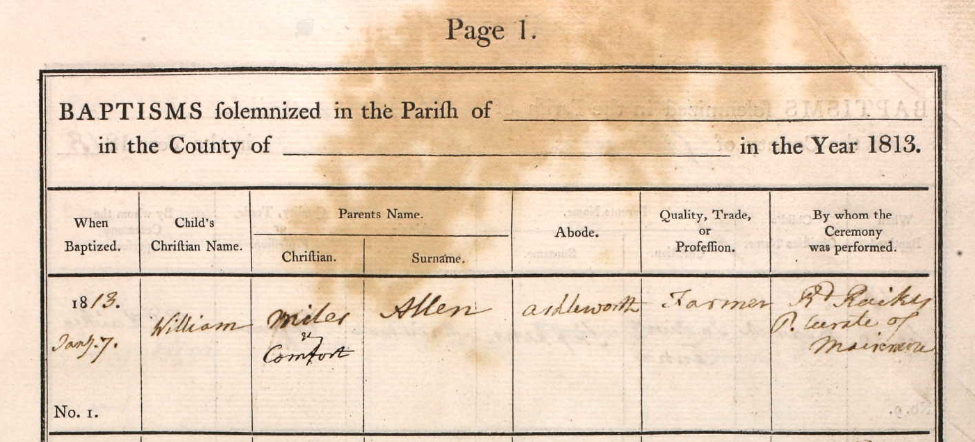 Page 1.
BAPTISMS ſolemnized in the Pariſh of
in the County of in the Year 1813.
When Baptized.
Child's Chriſtian Name.
Parents Name.
Chriſtian.
Surname.
Abode.
Quality, Trade, or Profeſſion.
By whom the Ceremony was performed.
1813.
Jany. 7.
William
Miles
&
Comfort
Allen
Ashleworth
Farmer
Rd. Raikes
P. Curate of
No. 1.